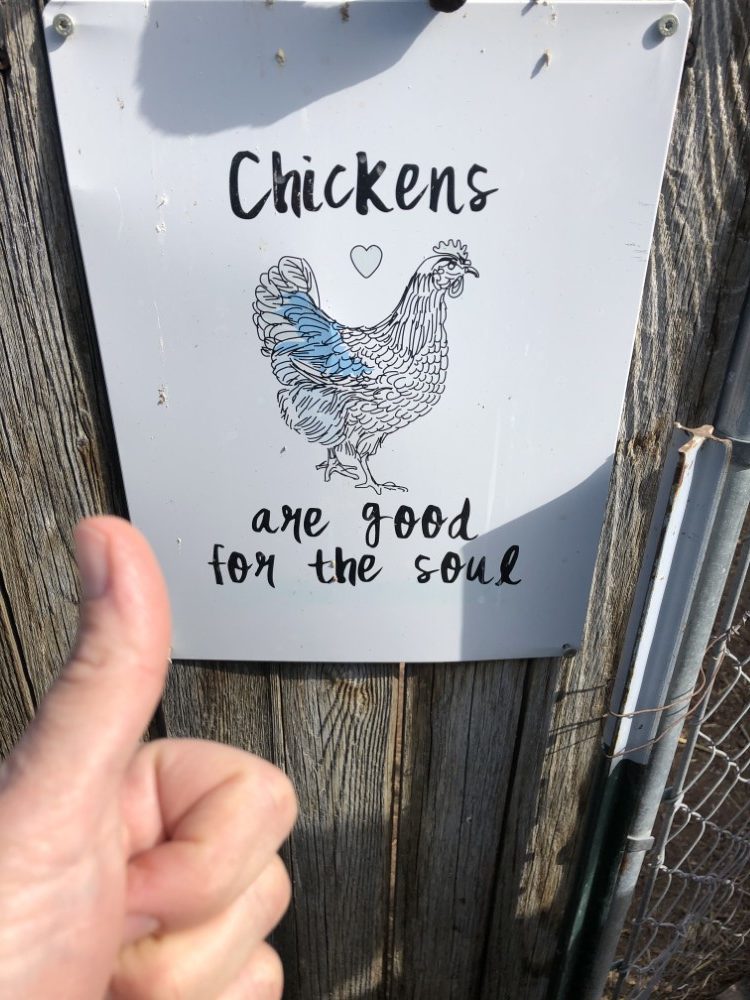 Chickens
are good
for the soul